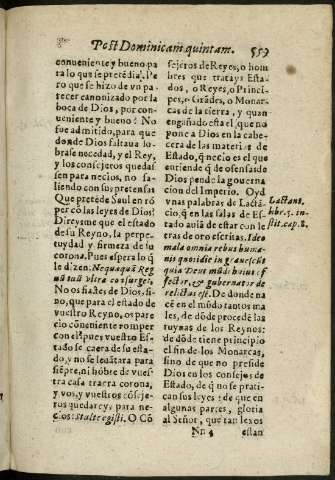 Post Dominicam quintam. 559
conueniente y bueno pa
ra lo que se pretẽdia. Pe
ro que se hizo de vn pa-
recer canonizado por la
boca de Dios, por con-
ueniente y bueno? No
fue admitido, para que
donde Dios faltaua so-
brase necedad, y el Rey,
y los consejeros quedas-
sen para necios, no sa-
liendo con sus pretensas
Que pretẽde Saul en rõ
per cõ las leyes de Dios?
Direysme que el estado
de su Reyno, la perpe-
tuydad y firmeza de su
corona. Pues espera lo q̃
le dizen. Nequaquã Reg
nũ tuũ vltra consurget.
No os fiastes de Dios, si-
no, que para el estado de
vuestro Reyno, os pare-
cio cõueniente romper
con el: pues vuestro Es-
tado se caera de su esta-
do, y no se leuãtara para
siẽpre, ni hõbre de vues-
tra casa traera corona,
y vos, y vuestros cõseje-
ros quedareys para ne-
cios: Stulte egisti. O Cõ
sejeros de Reyes, o hom
bres que tratays Esta-
dos, o Reyes, o Princi-
pes, o Grãdes, o Monar-
cas de la tierra, y quan
engañado esta el, que no
pone a Dios en la cabe-
cera de las materias de
Estado, q̃ necio es el que
entiende q̃ de ofensas de
Dios pende la gouerna
cion del Imperio. Oyd
vnas palabras de Lactã-
cio, q̃ en las salas de Es-
tado auiã de estar con le
tras de oro escritas. Ideo
mala omnia rebus huma-
nis quotidie in grauescũt
quia Deus mũdi huius ef
fector, & gubernator de
relictus est. De donde na
cẽ en el mũdo tantos ma
les, de dõde procedẽ las
ruynas de los Reynos:
de dõde tiene principio
el fin de los Monarcas,
sino de que no preside
Dios en los consejos de
Estado, de q̃ no se prati-
can sus leyes: de que en
algunas partes, gloria
al Señor, que tan lexos
Lactans.
libr. 5. in-
stit. cap. 8.
Nn 4 estan